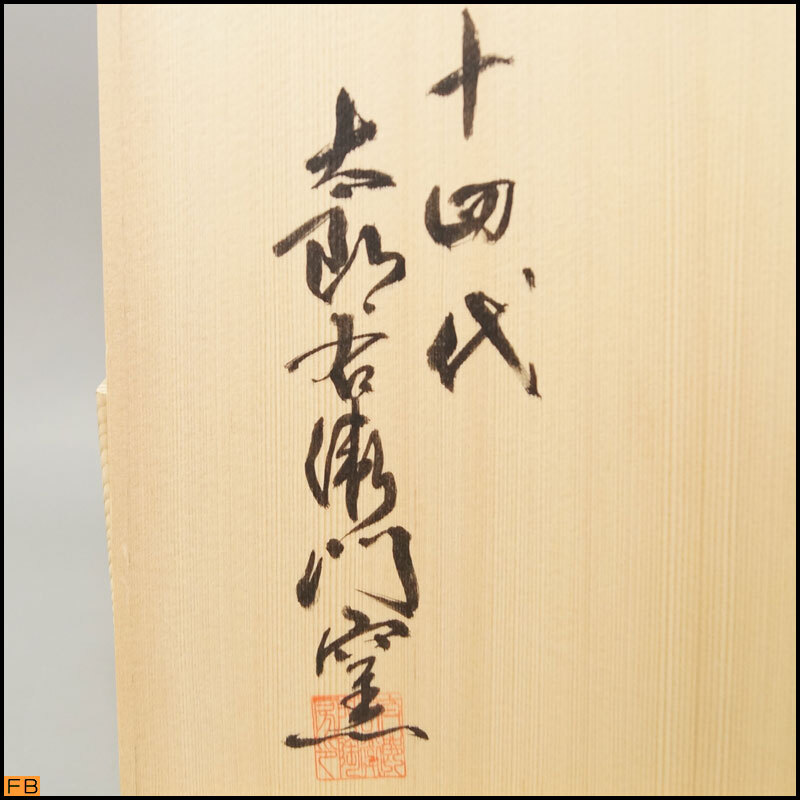 十四代
太郎右衛門窯
FB